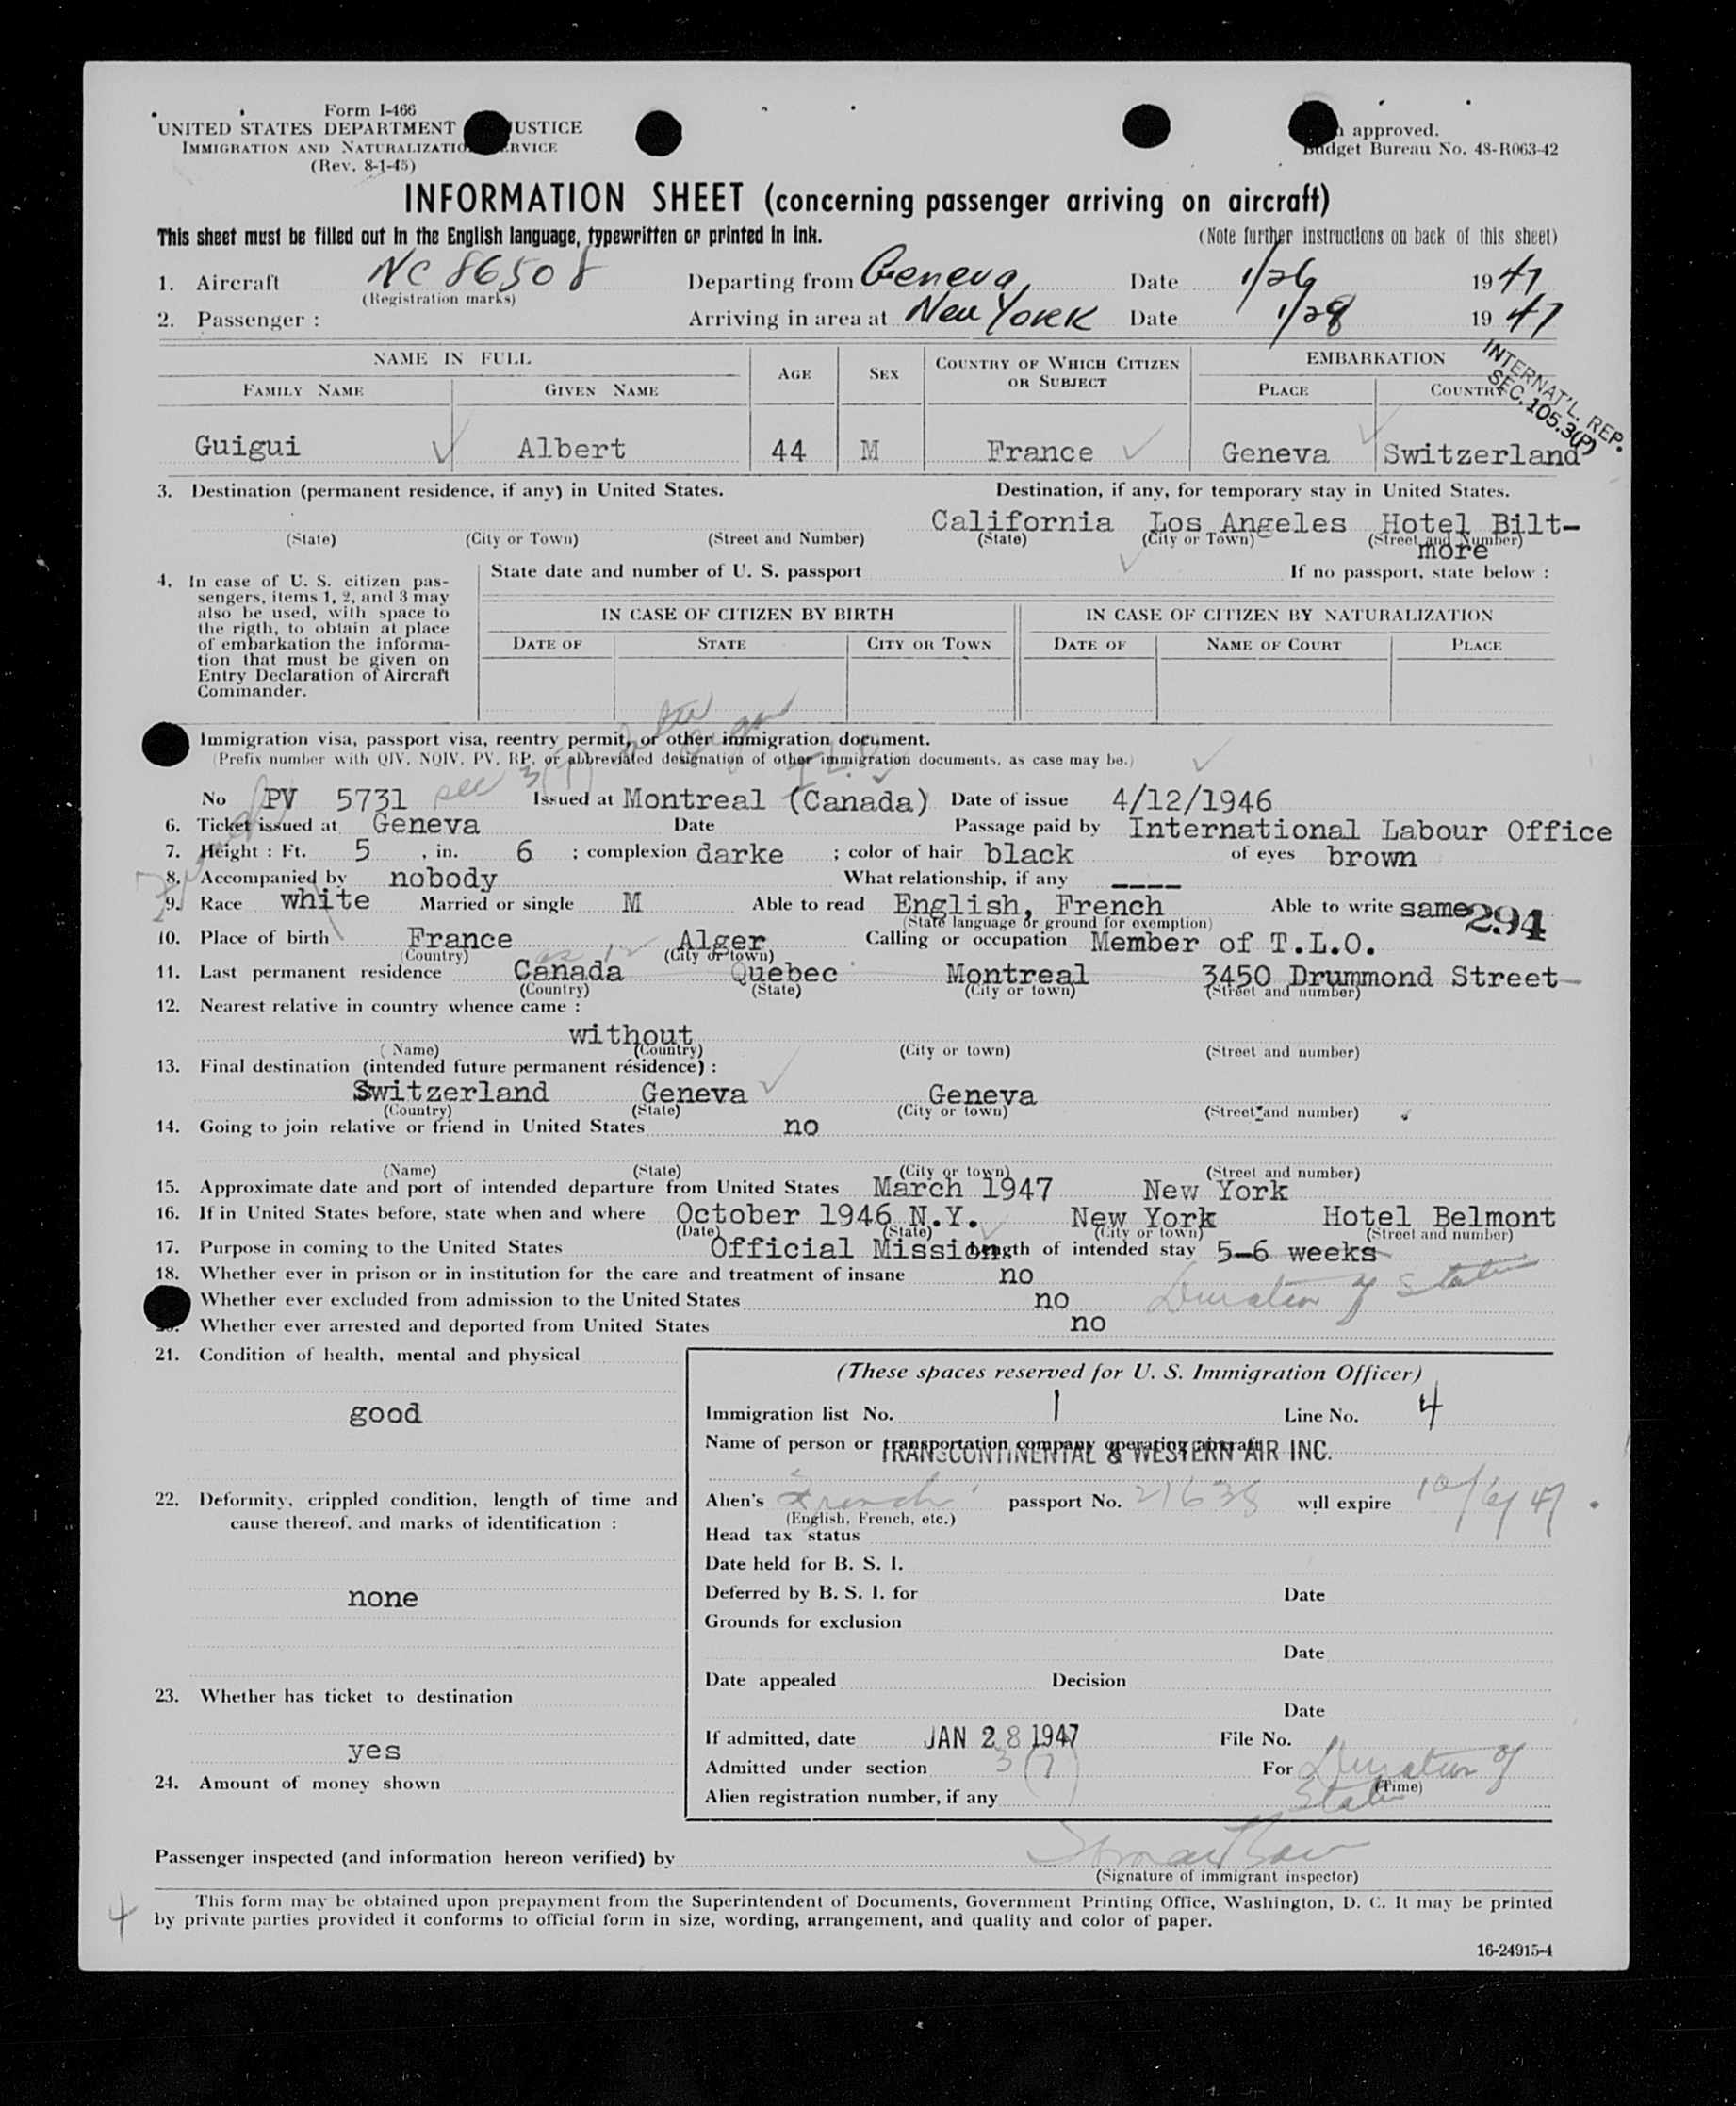 Form I-466
UNITED STATES DEPARTMENT USTICE
IMMIGRATION AND NATURALIZATIO RVICE
(Rev. 8-1-45)
approved.
Budget Bureau No. 48-R063-42
INFORMATION SHEET (concerning passenger arriving on aircraft)
This sheet must be filled out in the English language, typewritten or printed in ink. (Note further instructions on back of this sheet)
1. Aircraft NC 86508 Departing from Geneva Date 1/26 1947
(Registration marks)
2. Passenger : Arriving in area at New York Date 1/28 1947
INTERNAT'L. REP.
SEC. 105.3(P)
NAME IN FULL AGE SEX COUNTRY OF WHICH CITIZEN OR SUBJECT EMBARKATION
FAMILY NAME GIVEN NAME PLACE COUNTRY
Guigui Albert 44 M France Geneva Switzerland
3. Destination (permanent residence, if any) in United States. Destination, if any, for temporary stay in United States.
California Los Angeles Hotel Bilt-
(State) (City or Town) (Street and Number) (State) (City or Town) (Street and Number)
more
4. In case of U. S. citizen pas-
sengers, items 1, 2, and 3 may
also be used, with space to
the rigth, to obtain at place
of embarkation the informa-
tion that must be given on
Entry Declaration of Aircraft
Commander.
State date and number of U. S. passport If no passport, state below :
IN CASE OF CITIZEN BY BIRTH IN CASE OF CITIZEN BY NATURALIZATION
DATE OF STATE CITY OR TOWN DATE OF NAME OF COURT PLACE
Immigration visa, passport visa, reentry permit, or other immigration document.
(Prefix number with QIV, NQIV, PV, RP, or abbreviated designation of other immigration documents, as case may be.)
sec 3(7) I L O
No PV 5731 Issued at Montreal (Canada) Date of issue 4/12/1946
6. Ticket issued at Geneva Date Passage paid by International Labour Office
7. Height : Ft. 5 , in. 6 ; complexion darke ; color of hair black of eyes brown
8. Accompanied by nobody What relationship, if any ----
9. Race white Married or single M Able to read English, French Able to write same
(State language or ground for exemption)
294
10. Place of birth France Alger Calling or occupation Member of T.L.O.
(Country) (City or town)
11. Last permanent residence Canada Quebec Montreal 3450 Drummond Street
(Country) (State) (City or town) (Street and number)
12. Nearest relative in country whence came :
without
(Name) (Country) (City or town) (Street and number)
13. Final destination (intended future permanent résidence) :
Switzerland Geneva Geneva
(Country) (State) (City or town) (Street and number)
14. Going to join relative or friend in United States no
(Name) (State) (City or town) (Street and number)
15. Approximate date and port of intended departure from United States March 1947 New York
16. If in United States before, state when and where October 1946 N.Y. New York Hotel Belmont
(Date) (State) (City or town) (Street and number)
17. Purpose in coming to the United States Official Mission Length of intended stay 5-6 weeks
18. Whether ever in prison or in institution for the care and treatment of insane no
Duration of Status
Whether ever excluded from admission to the United States no
Whether ever arrested and deported from United States no
21. Condition of health, mental and physical
good
22. Deformity, crippled condition, length of time and
cause thereof, and marks of identification :
none
23. Whether has ticket to destination
yes
24. Amount of money shown
(These spaces reserved for U. S. Immigration Officer)
Immigration list No. 1 Line No. 4
Name of person or transportation company operating aircraft
TRANSCONTINENTAL & WESTERN AIR INC.
Alien's French passport No. 21638 will expire 10/6/47
(English, French, etc.)
Head tax status
Date held for B. S. I.
Deferred by B. S. I. for Date
Grounds for exclusion
Date
Date appealed Decision
Date
If admitted, date JAN 28 1947 File No.
Admitted under section 3(7) For Duration of
(Time)
Status
Alien registration number, if any
Passenger inspected (and information hereon verified) by
(Signature of immigrant inspector)
This form may be obtained upon prepayment from the Superintendent of Documents, Government Printing Office, Washington, D. C. It may be printed
by private parties provided it conforms to official form in size, wording, arrangement, and quality and color of paper.
4
16-24915-4